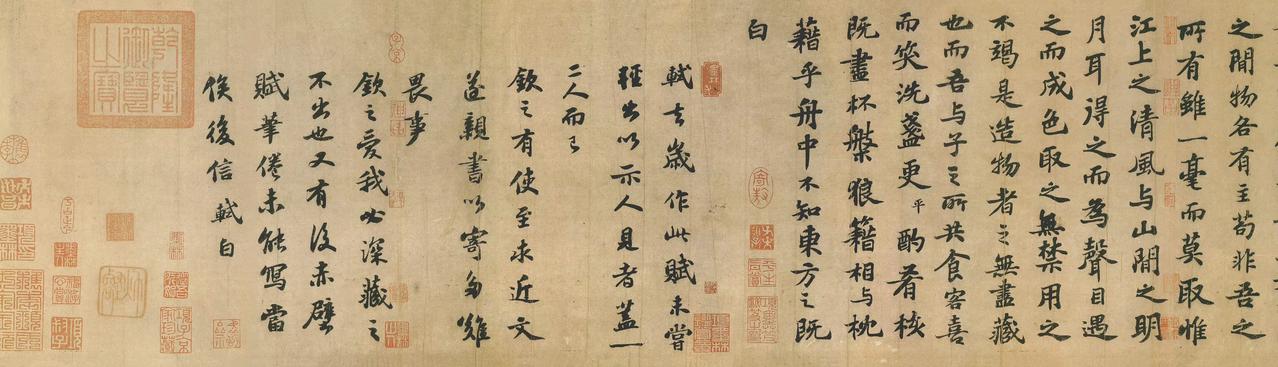 之間物各有主苟非吾之
所有雖一毫而莫取惟
江上之清風与山間之明
月耳得之而為聲目遇
之而成色取之無禁用之
不竭是造物者之無盡藏
也而吾与子之所共食客喜
而笑洗盞更平酌肴核
既盡杯槃狼籍相与枕
藉乎舟中不知東方之既
白
軾去歲作此賦未嘗
輕出以示人見者蓋一
二人而已
欽之有使至求近文
遂親書以寄多難
畏事
欽之愛我必深藏之
不出也又有後赤壁
賦筆倦未能寫當
俟後信軾白
乾隆御覽之寶